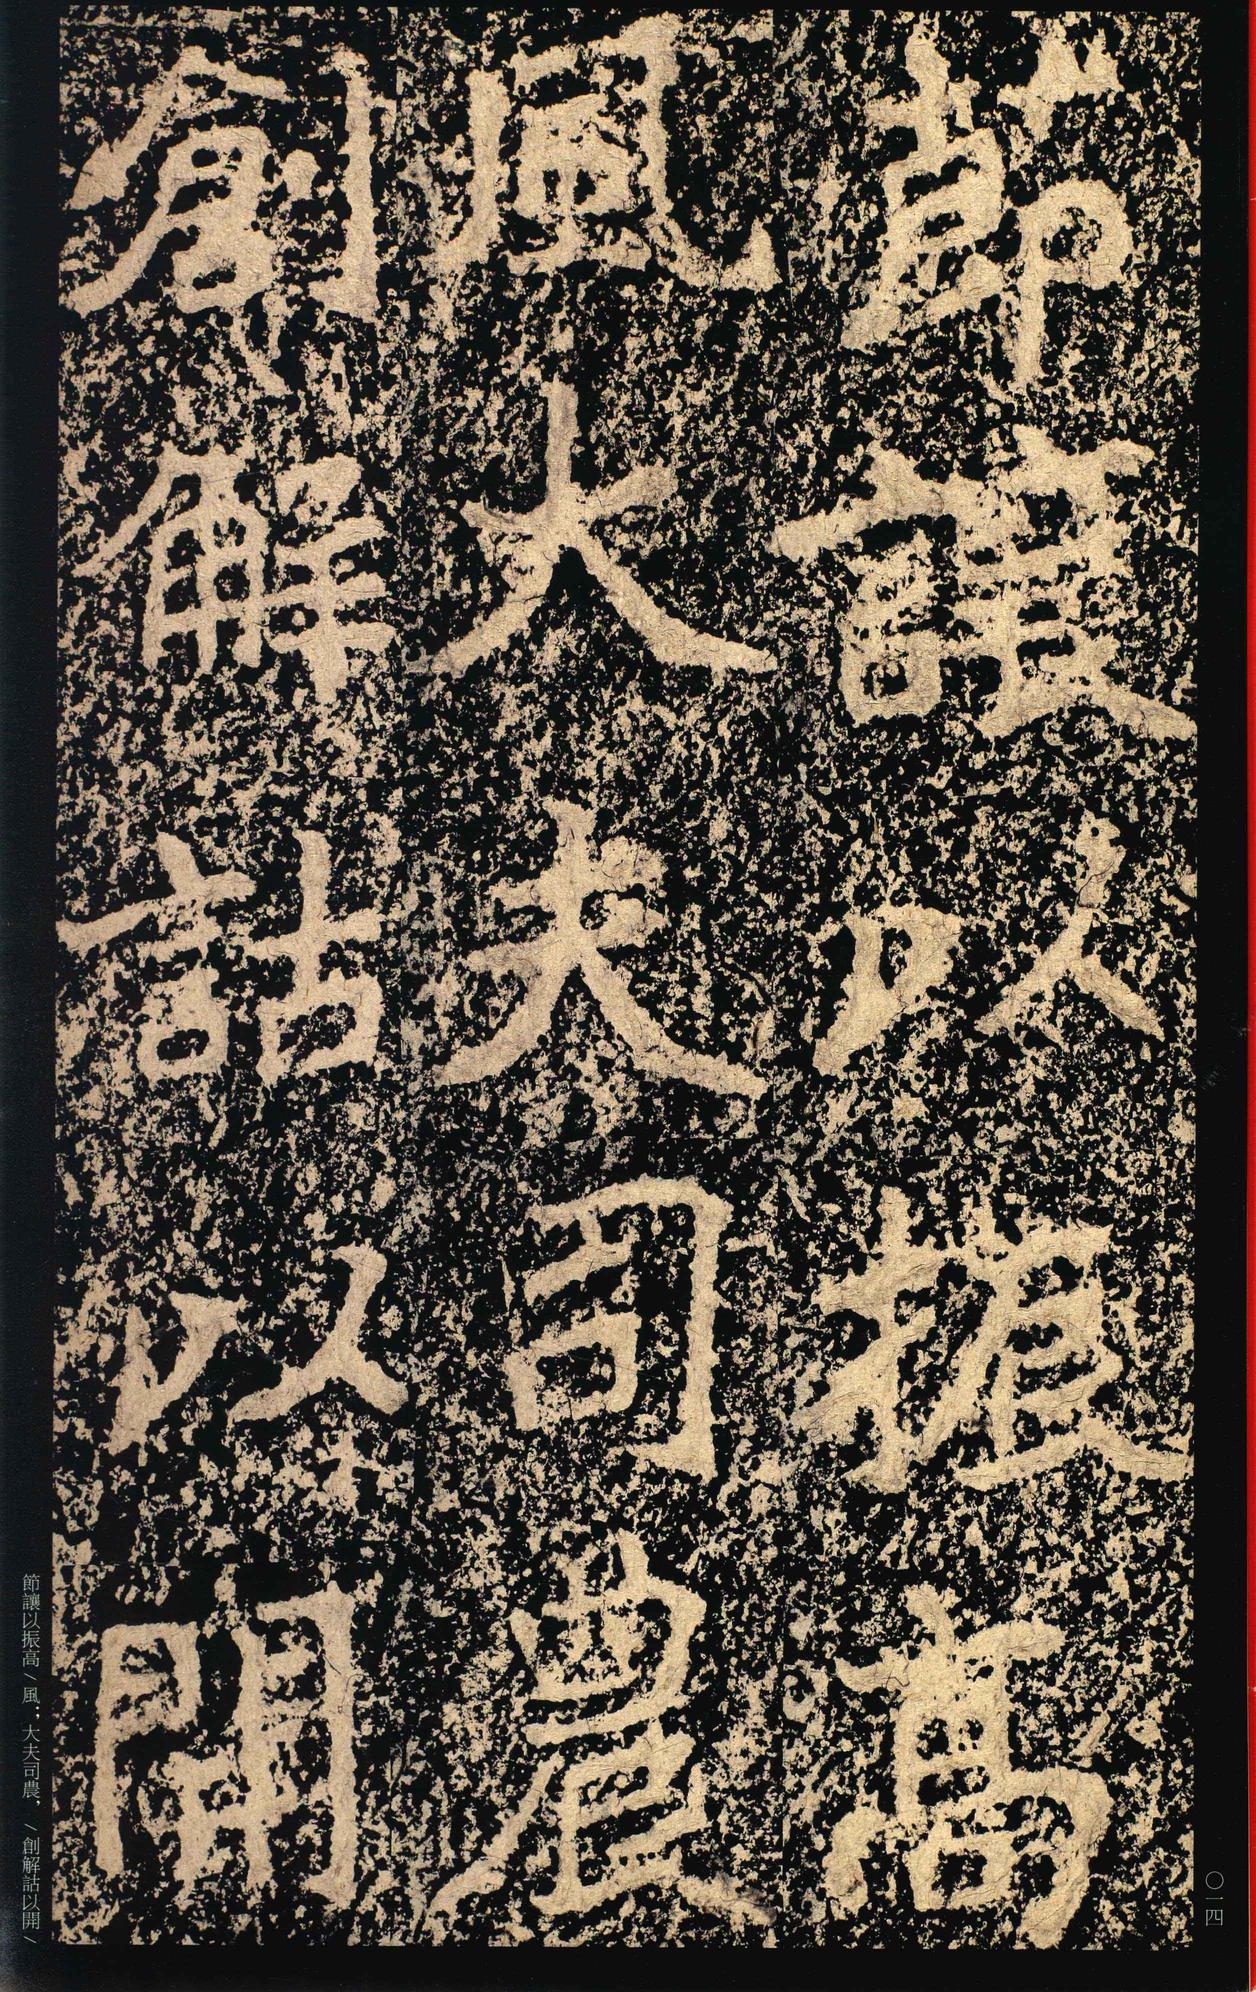 節讓以振高
風大夫司農
創解詁以開
節讓以振高／風；大夫司農，／創解詁以開／
〇一四